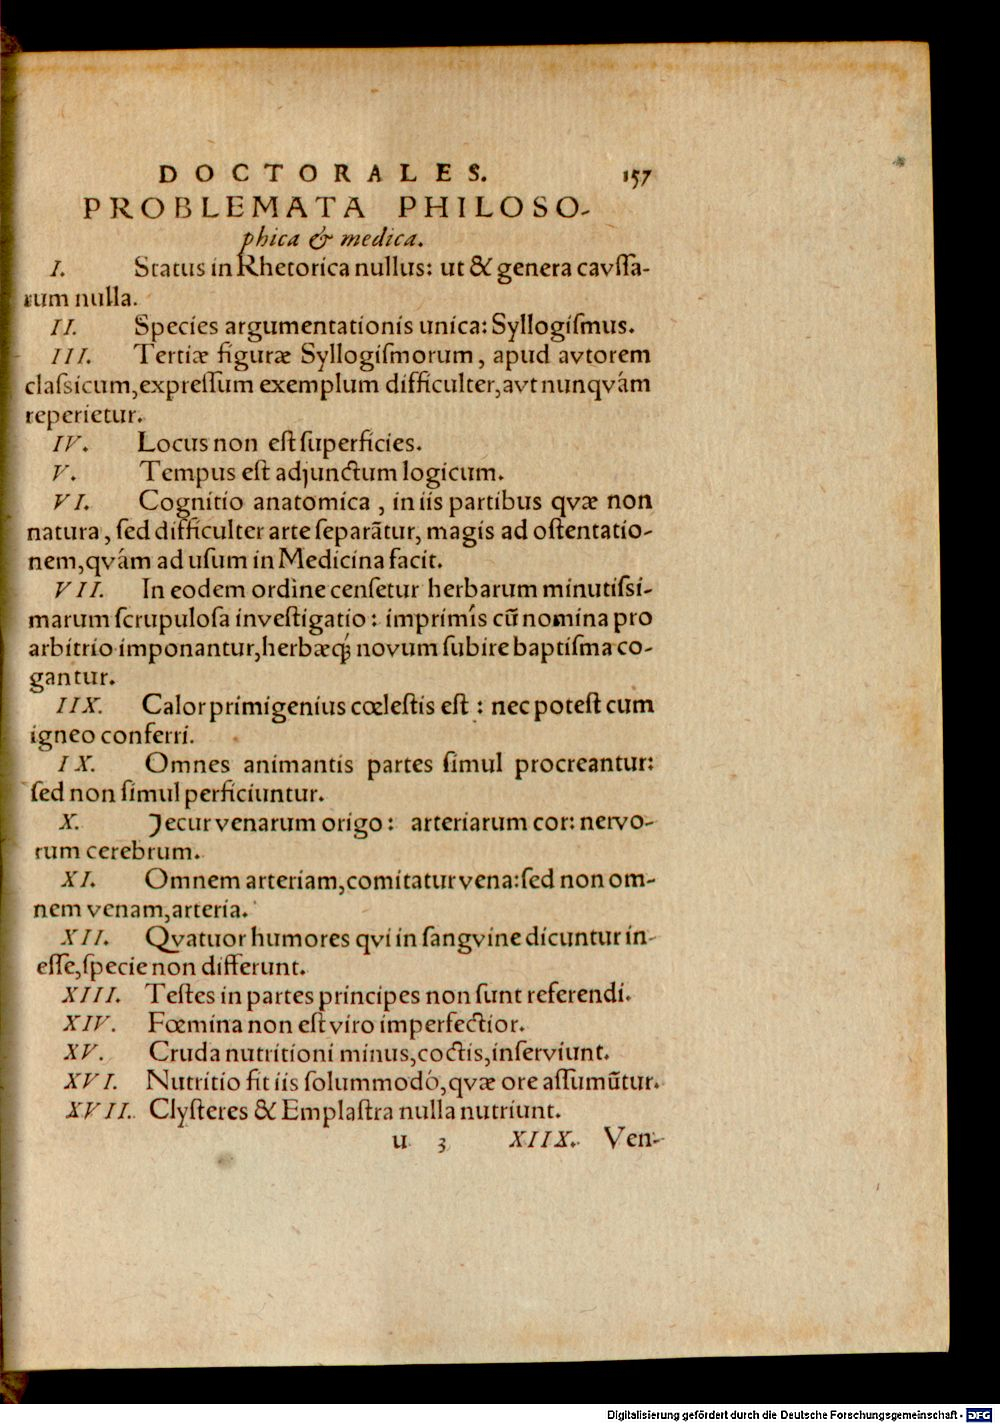 DOCTORALES. 157
PROBLEMATA PHILOSO-
phica & medica.
I. Status in Rhetorica nullus: ut & genera cavſſa-
rum nulla.
II. Species argumentationis unica: Syllogiſmus.
III. Tertiæ figuræ Syllogiſmorum, apud avtorem
claſsicum, expreſſum exemplum difficulter, avt nunqvám
reperietur.
IV. Locus non eſt ſuperficies.
V. Tempus eſt adjunctum logicum.
VI. Cognitio anatomica, in iis partibus qvæ non
natura, ſed difficulter arte ſeparãtur, magis ad oſtentatio-
nem, qvám ad uſum in Medicina facit.
VII. In eodem ordine cenſetur herbarum minutiſsi-
marum ſcrupuloſa inveſtigatio: imprimís cũ nomina pro
arbitrio imponantur, herbæq́; novum ſubire baptiſma co-
gantur.
IIX. Calor primigenius cœleſtis eſt: nec poteſt cum
igneo conferri.
IX. Omnes animantis partes ſimul procreantur:
ſed non ſimul perficiuntur.
X. Jecur venarum origo: arteriarum cor: nervo-
rum cerebrum.
XI. Omnem arteriam, comitatur vena: ſed non om-
nem venam, arteria.
XII. Qvatuor humores qvi in ſangvine dicuntur in-
eſſe, ſpecie non differunt.
XIII. Teſtes in partes principes non ſunt referendi.
XIV. Fœmina non eſt viro imperfectior.
XV. Cruda nutritioni minus, coctis, inſerviunt.
XVI. Nutritio fit iis ſolummodó, qvæ ore aſſumũtur.
XVII. Clyſteres & Emplaſtra nulla nutriunt.
u 3 XIIX. Ven-
Digitalisierung gefördert durch die Deutsche Forschungsgemeinschaft - DFG